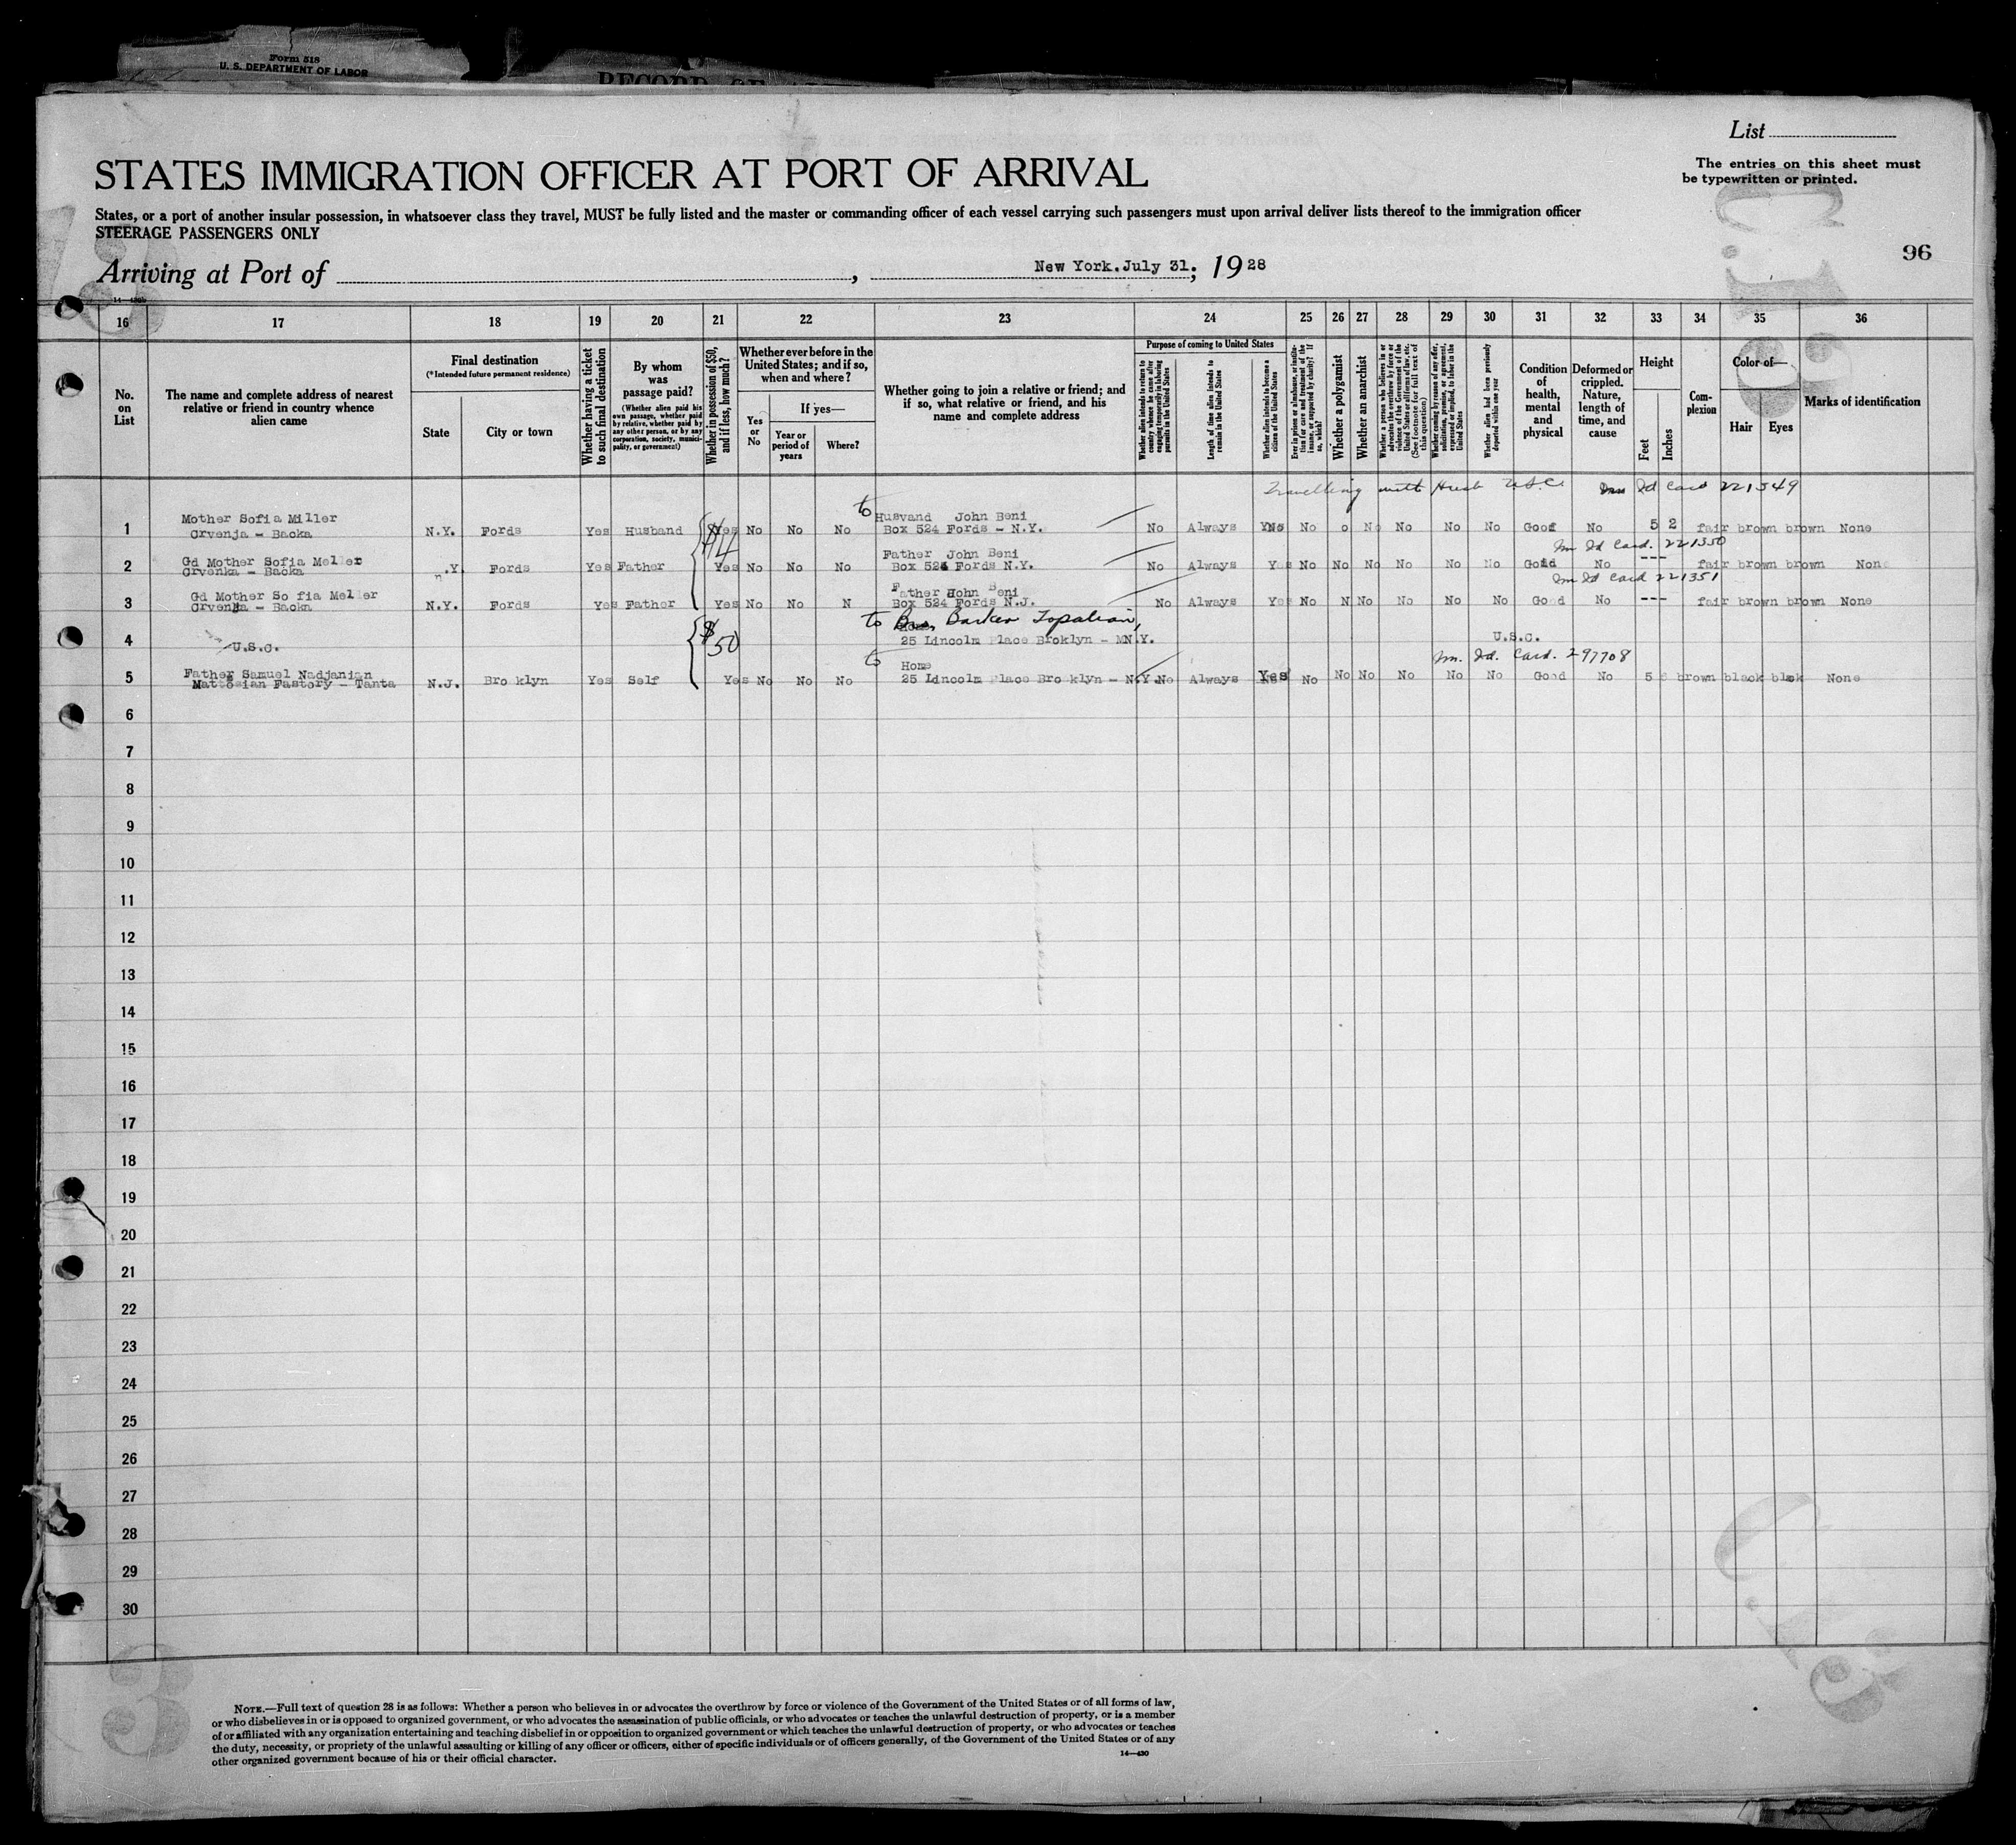 Form 518
U. S. DEPARTMENT OF LABOR
RECORD OF
List
STATES IMMIGRATION OFFICER AT PORT OF ARRIVAL
The entries on this sheet must
be typewritten or printed.
States, or a port of another insular possession, in whatsoever class they travel, MUST be fully listed and the master or commanding officer of each vessel carrying such passengers must upon arrival deliver lists thereof to the immigration officer
STEERAGE PASSENGERS ONLY
96
Arriving at Port of , New York. July 31; 1928
16 17 18 19 20 21 22 23 24 25 26 27 28 29 30 31 32 33 34 35 36
No. on List
The name and complete address of nearest relative or friend in country whence alien came
Final destination
(*Intended future permanent residence)
State
City or town
Whether having a ticket to such final destination
By whom was passage paid?
(Whether alien paid his own passage, whether paid by relative, whether paid by any other person, or by any corporation, society, municipality, or government)
Whether in possession of $50, and if less, how much?
Whether ever before in the United States; and if so, when and where?
Yes or No
If yes—
Year or period of years
Where?
Whether going to join a relative or friend; and if so, what relative or friend, and his name and complete address
Purpose of coming to United States
Whether alien intends to return to country whence he came after engaging temporarily in laboring pursuits in the United States
Length of time alien intends to remain in the United States
Whether alien intends to become a citizen of the United States
Ever in prison or almshouse, or institution for care and treatment of the insane, or supported by charity? If so, which?
Whether a polygamist
Whether an anarchist
Whether a person who believes in or advocates the overthrow by force or violence of the Government of the United States or all forms of law, etc. (See footnote for full text of this question)
Whether coming by reason of any offer, solicitation, promise, or agreement, expressed or implied, to labor in the United States
Whether alien had been previously deported within one year
Condition of health, mental and physical
Deformed or crippled. Nature, length of time, and cause
Height
Feet
Inches
Complexion
Color of—
Hair
Eyes
Marks of identification
Travelling with Husb U.S.C. Im Id card 221349
1 Mother Sofia Miller
Crvenja - Backa N.Y. Fords Yes Husband $14 Yes No No No to Husvand John Beni
Box 524 Fords - N.Y. No Always Yes No o No No No No Good No 5 2 fair brown brown None
Im Id Card. 221350
2 Gd Mother Sofia Meller
Crvenka - Backa n.Y. Fords Yes Father Yes No No No Father John Beni
Box 524 Fords N.Y. No Always Yes No No No No No No Good No --- fair brown brown None
Im Id Card 221351
3 Gd Mother So fia Meller
Crvenka - Backa N.Y. Fords Yes Father Yes No No N Father John Beni
Box 524 Fords N.J. No Always Yes No N No No No No Good No --- fair brown brown None
4 U.S.C. $50 to Bro. Barker Topalian,
25 Lincolm Place Broklyn - N.Y. U.S.C.
Im. Id. Card. 297708
5 Father Samuel Nadjanian
Mattosian Fastory - Tanta N.J. Bro klyn Yes Self Yes No No No to Home
25 Lincolm Place Bro klyn - N.Y. No Always Yes No No No No No No Good No 5 6 brown black blck None
6
7
8
9
10
11
12
13
14
15
16
17
18
19
20
21
22
23
24
25
26
27
28
29
30
NOTE.—Full text of question 28 is as follows: Whether a person who believes in or advocates the overthrow by force or violence of the Government of the United States or of all forms of law,
or who disbelieves in or is opposed to organized government, or who advocates the assassination of public officials, or who advocates or teaches the unlawful destruction of property, or is a member
of or affiliated with any organization entertaining and teaching disbelief in or opposition to organized government or which teaches the unlawful destruction of property, or who advocates or teaches
the duty, necessity, or propriety of the unlawful assaulting or killing of any officer or officers, either of specific individuals or of officers generally, of the Government of the United States or of any
other organized government because of his or their official character.
14—430